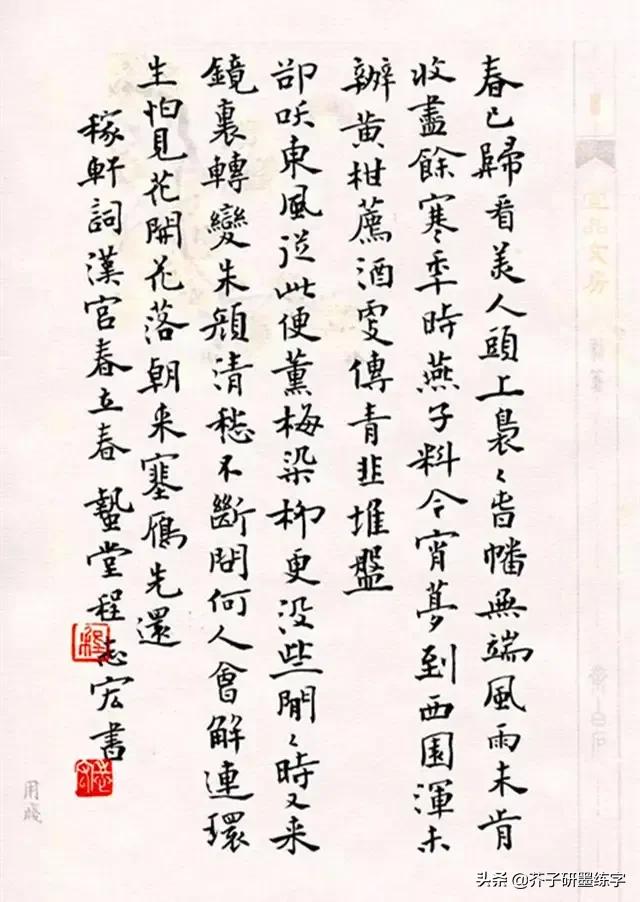 春已歸看美人頭上裊〻旾幡無端風雨未肯
收盡餘寒年時燕子料今宵夢到西園渾未
辦黃柑薦酒更傳青韭堆盤
卻咲東風從此便薰梅染柳更沒些閒〻時又来
鏡裏轉變朱顏清愁不斷問何人會解連環
生怕見花開花落朝来塞鴈先還
稼軒詞漢宮春立春 蟄堂程志宏書
程
用箋
头条 @芥子研墨练字